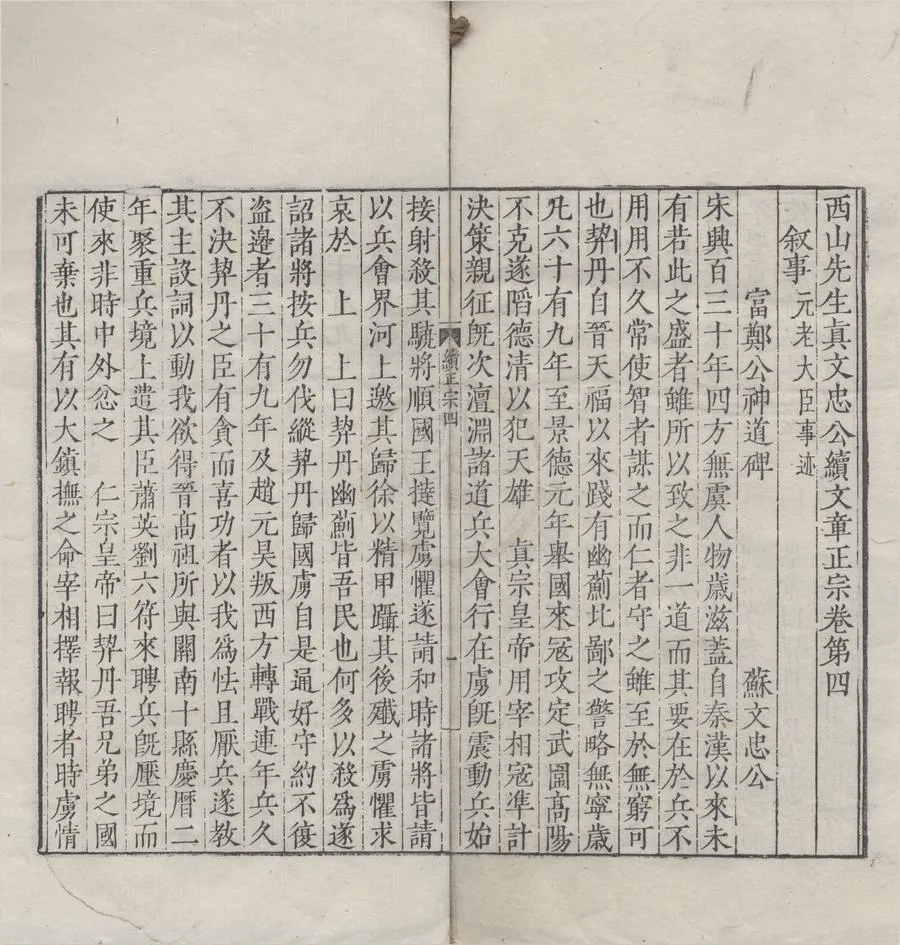 西山先生真文忠公續文章正宗卷第四
叙事 元老大臣事迹
富鄭公神道碑 蘇文忠公
宋興百三十年四方無虞人物歲滋蓋自秦漢以來未
有若此之盛者雖所以致之非一道而其要在於兵不
用用不久常使智者謀之而仁者守之雖至於無窮可
也契丹自晉天福以來踐有幽薊北鄙之警略無寧歲
凡六十有九年至景德元年舉國來冦攻定武圍高陽
不克遂陷德清以犯天雄 真宗皇帝用宰相冦凖計
決策親征旣次澶淵諸道兵大會行在虜旣震動兵始
續正宗四
一
接射殺其驍將順國王撻覽虜懼遂請和時諸將皆請
以兵會界河上邀其歸徐以精甲躡其後殲之虜懼求
哀於 上 上曰契丹幽薊皆吾民也何多以殺爲遂
詔諸將按兵勿伐縱契丹歸國虜自是通好守約不復
盗邊者三十有九年及趙元昊叛西方轉戰連年兵久
不決契丹之臣有貪而喜功者以我爲怯且厭兵遂教
其主設詞以動我欲得晉高祖所與關南十縣慶曆二
年聚重兵境上遣其臣蕭英劉六符來聘兵旣壓境而
使來非時中外忿之 仁宗皇帝曰契丹吾兄弟之國
未可棄也其有以大鎮撫之命宰相擇報聘者時虜情